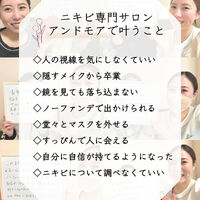 ニキビ専門サロン
アンドモアで叶うこと
◇人の視線を気にしなくていい
◇隠すメイクから卒業
◇鏡を見ても落ち込まない
◇ノーファンデで出かけられる
◇堂々とマスクを外せる
◇すっぴんで人に会える
◇自分に自信が持てるようになった
◇ニキビについて調べなくていい